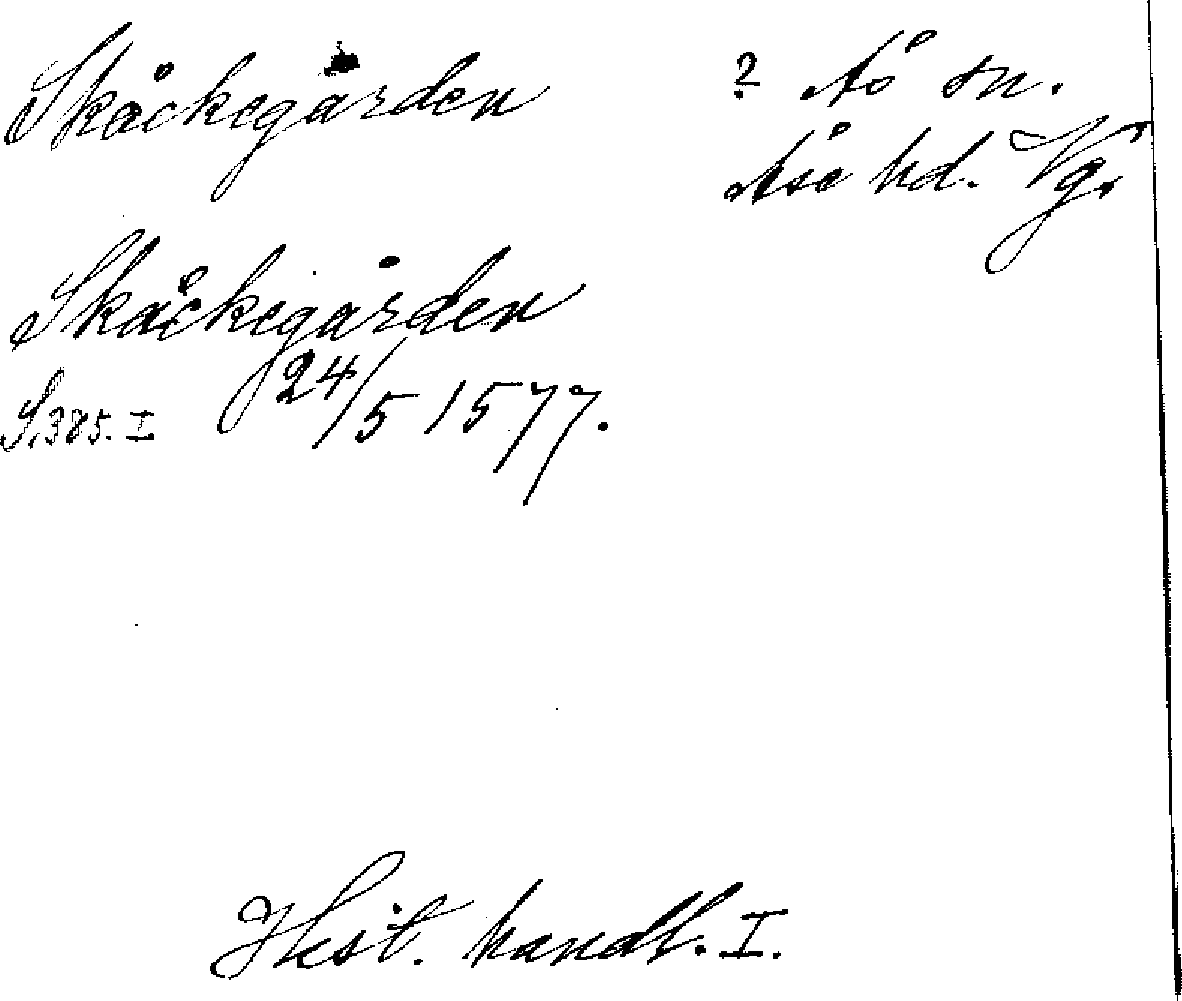 Skåckegården ? Ås sn.
Åse hd. Vg.
Skåckegården
S. 385. I 24/5 1577.
Hist. handl. I.